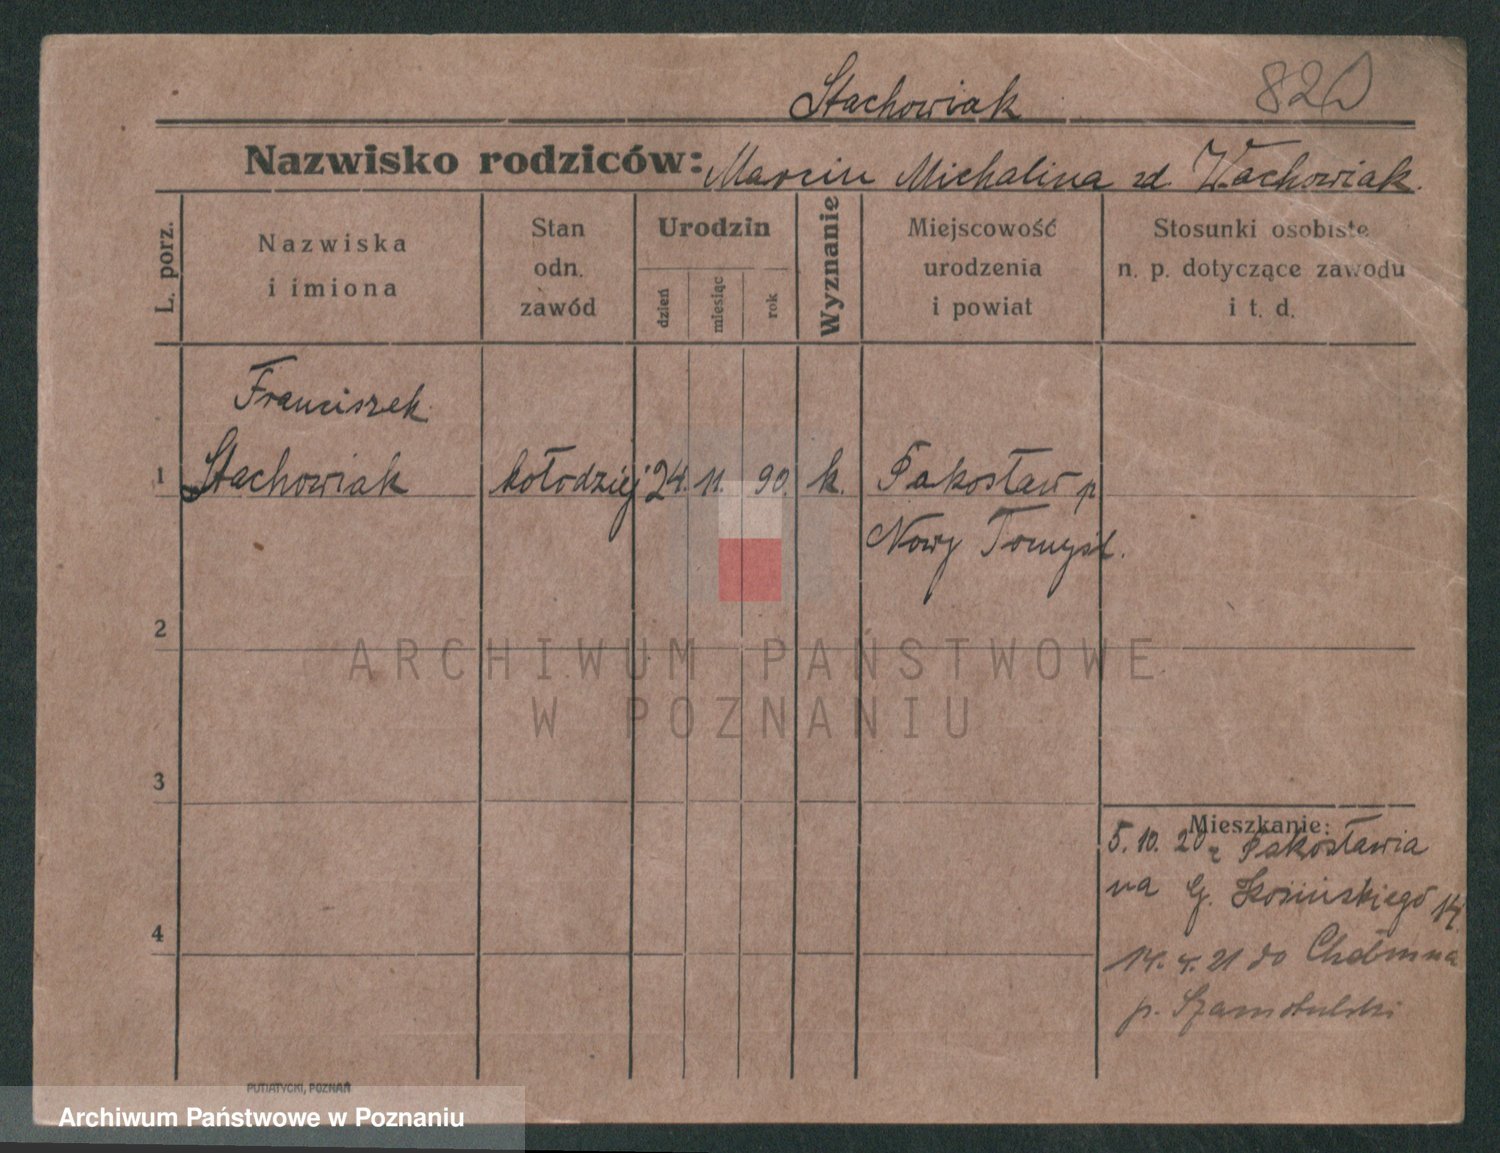 Stachowiak
82
Nazwisko rodziców: Marcin Michalina zd. Wachowiak.
L. porz.
Nazwiska
i imiona
Stan
odn.
zawód
Urodzin
dzień
miesiąc
rok
Wyznanie
Miejscowość
urodzenia
i powiat
Stosunki osobiste
n. p. dotyczące zawodu
i t. d.
Franciszek
1 Stachowiak kołodziej 24. 11. 90. k. Pakosław p
Nowy Tomyśl.
2
ARCHIWUM PAŃSTWOWE
W POZNANIU
3
Mieszkanie:
5. 10. 20 z Pakosławia
na G. Kosińskiego 14
4
14. 4. 21 do Chełmna
p. Szamotulski
PUTIATYCKI, POZNAŃ
Archiwum Państwowe w Poznaniu